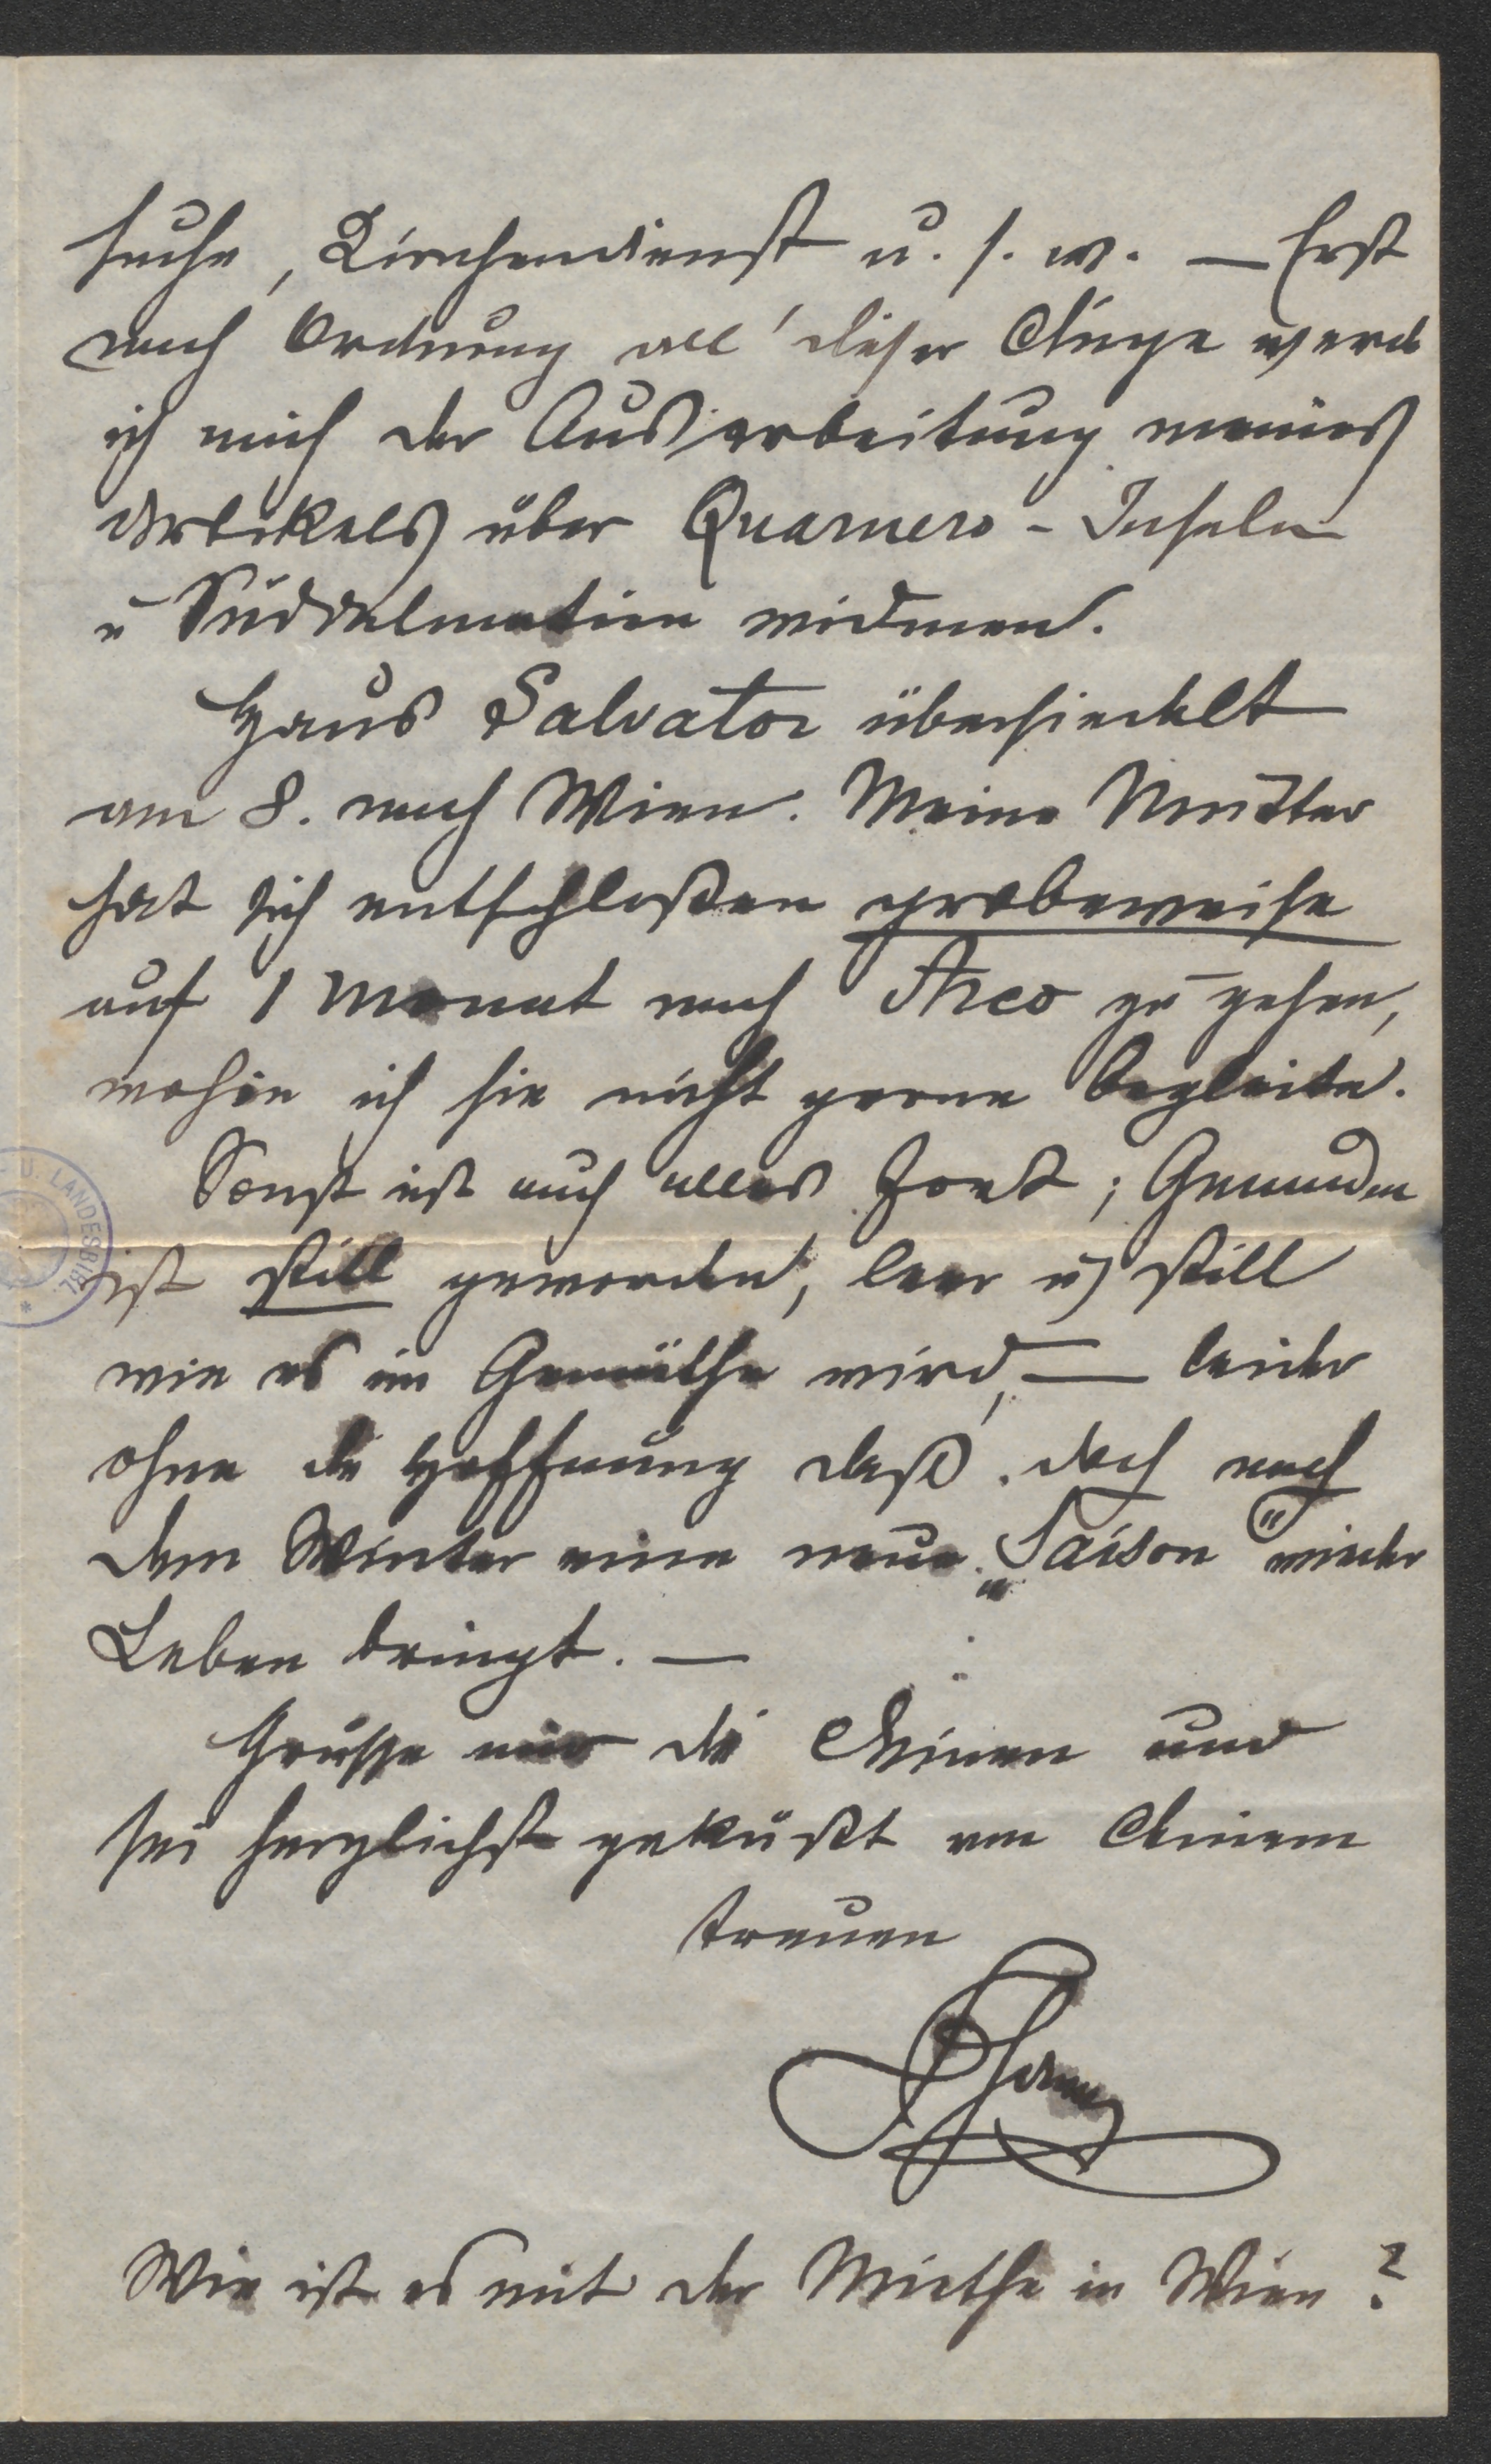 suche, Kirchendienst u. s. w. — Erst
nach Ordnung all' dieser Dinge werd
ich mich der Ausarbeitung meines
Artikels über Quarnero-Inseln
u Süddalmatien widmen.
Haus Salvator übersiedelt
am 8. nach Wien. Meine Mutter
hat sich entschloßen probeweise
auf 1 Monat nach Arco zu gehen,
wohin ich sie nicht gerne begleite.
Sonst ist auch alles fort; Gmunden
ist still geworden, leer u still
wie es im Gemüthe wird, — leider
ohne die Hoffnung daß doch nach
dem Winter eine neue „Saison" wieder
Leben bringt. —
Grüsse mir die Deinen und
sei herzlichst geküßt von Deinem
treuen
Wie ist es mit der Miethe in Wien?
U. LANDESBIBL